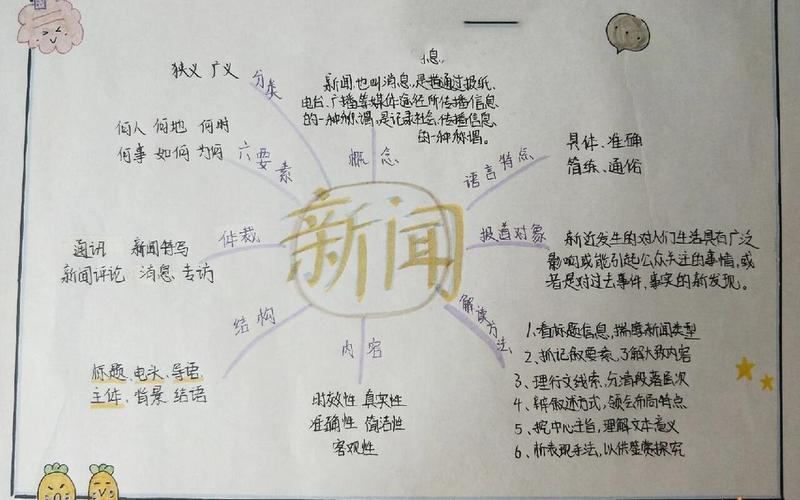 息。
新闻也叫消息,是指通过报纸、
电台、广播等媒体途径所传播信息
的一种称谓,是记录社会、传播信息
的一种称谓。
概念
狭义 广义
分类
何人 何地 何时
何事 如何 为何
六要素
具体、准确
简练、通俗
语言特点
新闻
通讯 新闻特写
新闻评论 消息 专访
件裁
报道对象
新近发生的对人们生活具有广泛
影响或能引起公众关注的事情,或
者是对过去事件,事实的新发现。
结构
标题、电头、导语、
主体、背景 结语
内容
时效性 真实性
准确性 简洁性
客观性
解读方法
1、看标题信息,揣摩新闻类型
2、抓记叙要素,了解大致内容
3、理行文线索,分清段落层次
4、叙述方式,领会布局特点
5、挖中心主旨,理解文本意义
6、析表现手法,以供鉴赏探究